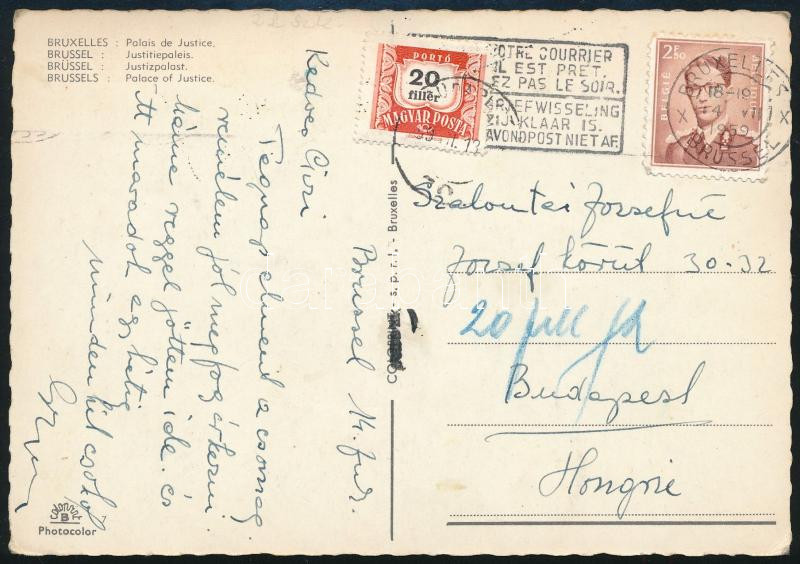 BRUXELLES : Palais de Justice.
BRUSSEL : Justitiepaleis.
BRÜSSEL : Justizpalast.
BRUSSELS : Palace of Justice.
Kedves Gizi
Brüssel 14. Jul.
Tegnap elment a csomag
remélem jól meg fog érkezni
reggel jöttem ide. és
itt maradok egy hétig
minden jót csókol
Photocolor
COLORPRINT - s.p.r.l. - Bruxelles
PORTÓ
20
fillér
MAGYAR POSTA
VOTRE COURRIER
IL EST PRÊT.
EZ PAS LE SOIR.
BRIEFWISSELING
ZIJ KLAAR IS.
AVONDPOST NIET AF.
2F50
BELGIË
BRUXELLES
18-19
1959
BRUSSEL
Szalontai Józsefné
József körút 30-32
20 fill
Budapest
Hongrie